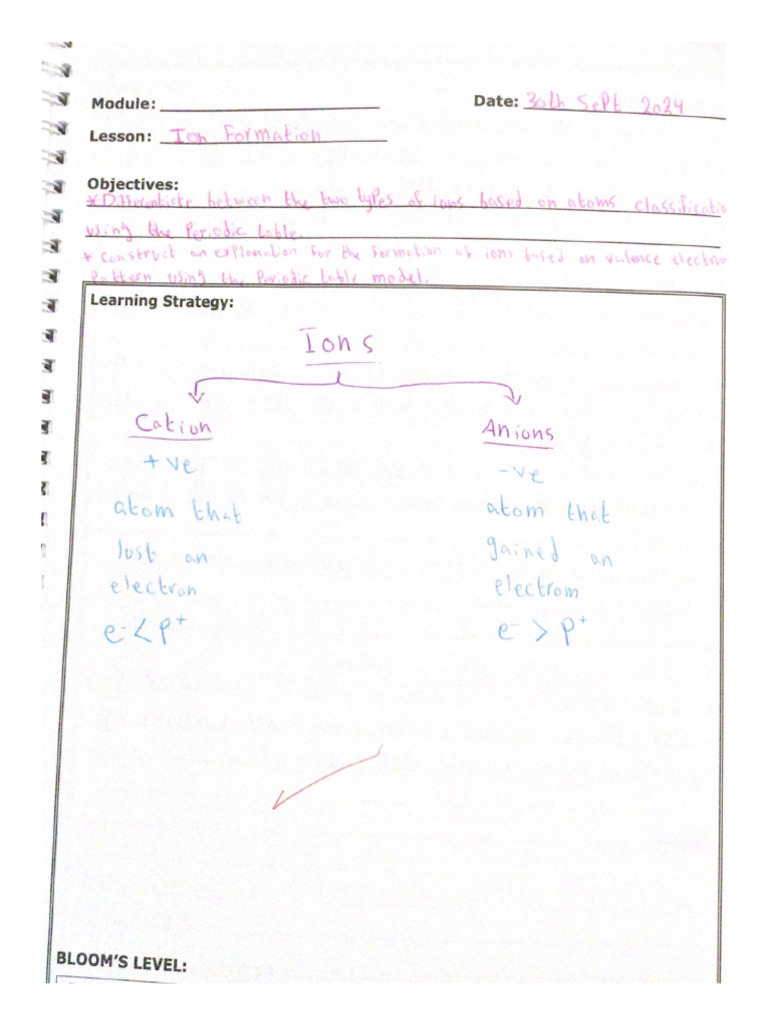 Module:
Date: 30th Sept 2024
Lesson: Ion Formation
Objectives:
* Differentiate between the two types of ions based on atoms classificatio
using the Periodic table.
* Construct an explanation for the formation of ions based on valence electron
Pattern using the Periodic table model.
Learning Strategy:
Ions
Cation
Anions
+ve
-ve
atom that
atom that
lost an
gained an
electron
electrom
e- < P+
e- > P+
BLOOM'S LEVEL: